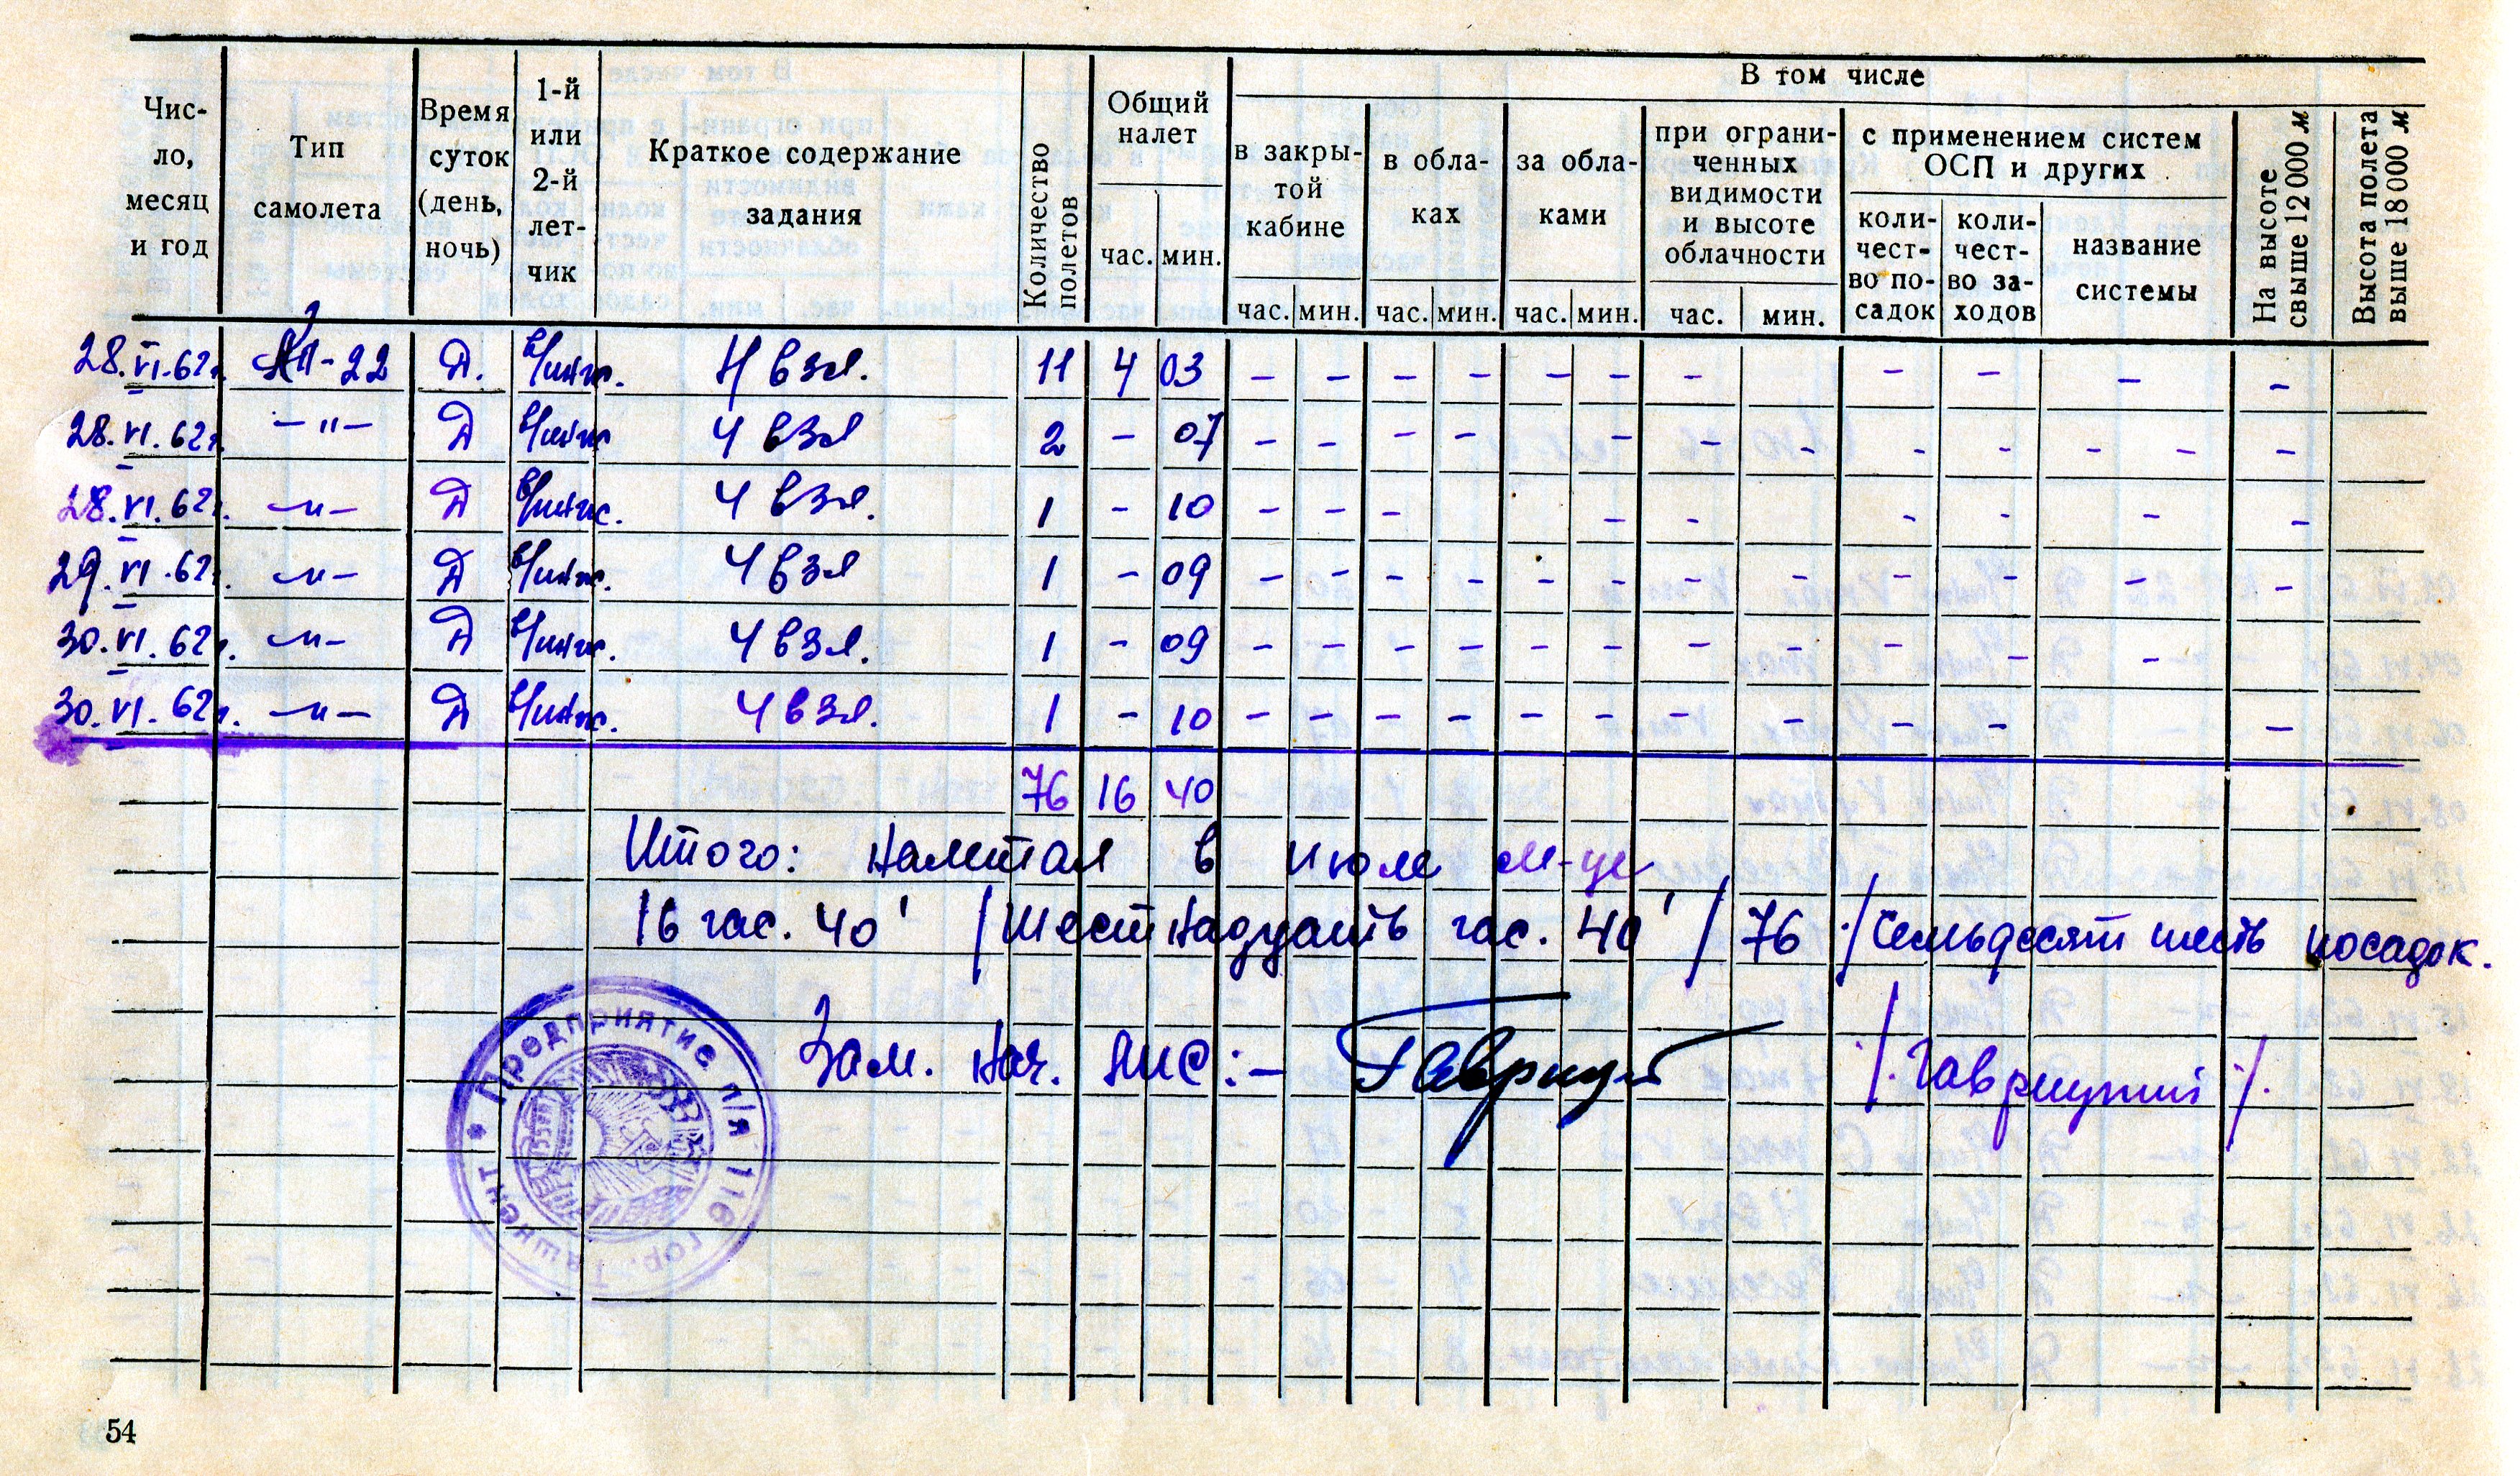 В том числе
Чис-ло, месяц и год
Тип самолета
Время суток (день, ночь)
1-й или 2-й лет-чик
Краткое содержание задания
Количество полетов
Общий налет
час. мин.
в закры-той кабине
час. мин.
в обла-ках
час. мин.
за обла-ками
час. мин.
при ограни-ченных видимости и высоте облачности
час. мин.
с применением систем ОСП и других
коли-чест-во по-садок
коли-чест-во за-ходов
название системы
На высоте свыше 12000 м
Высота полета выше 18000 м
28.VI.62г. Ан-22 Д. 11 4 03 – – – – – – – – – – –
28.VI.62г. –"– Д Ч взл 2 – 07 – – – – – – – – – – – –
28.VI.62г. –"– Д Ч взл. 1 – 10 – – – – – – – – –
29.VI.62г. –"– Д Ч взл 1 – 09 – – – – – – – – – – – –
30.VI.62г. –"– Д Ч взл. 1 – 09 – – – – – – – – – – –
30.VI.62г. –"– Д Ч взл. 1 – 10 – – – – – – – – – – –
76 16 40
Итого: налетал в июне м-це
16 час. 40' /Шестнадцать час. 40'/ 76 /Семьдесят шесть посадок.
Зам. нач. ЛИС:–
Предприятие п/я 116
гор. Ташкент
54